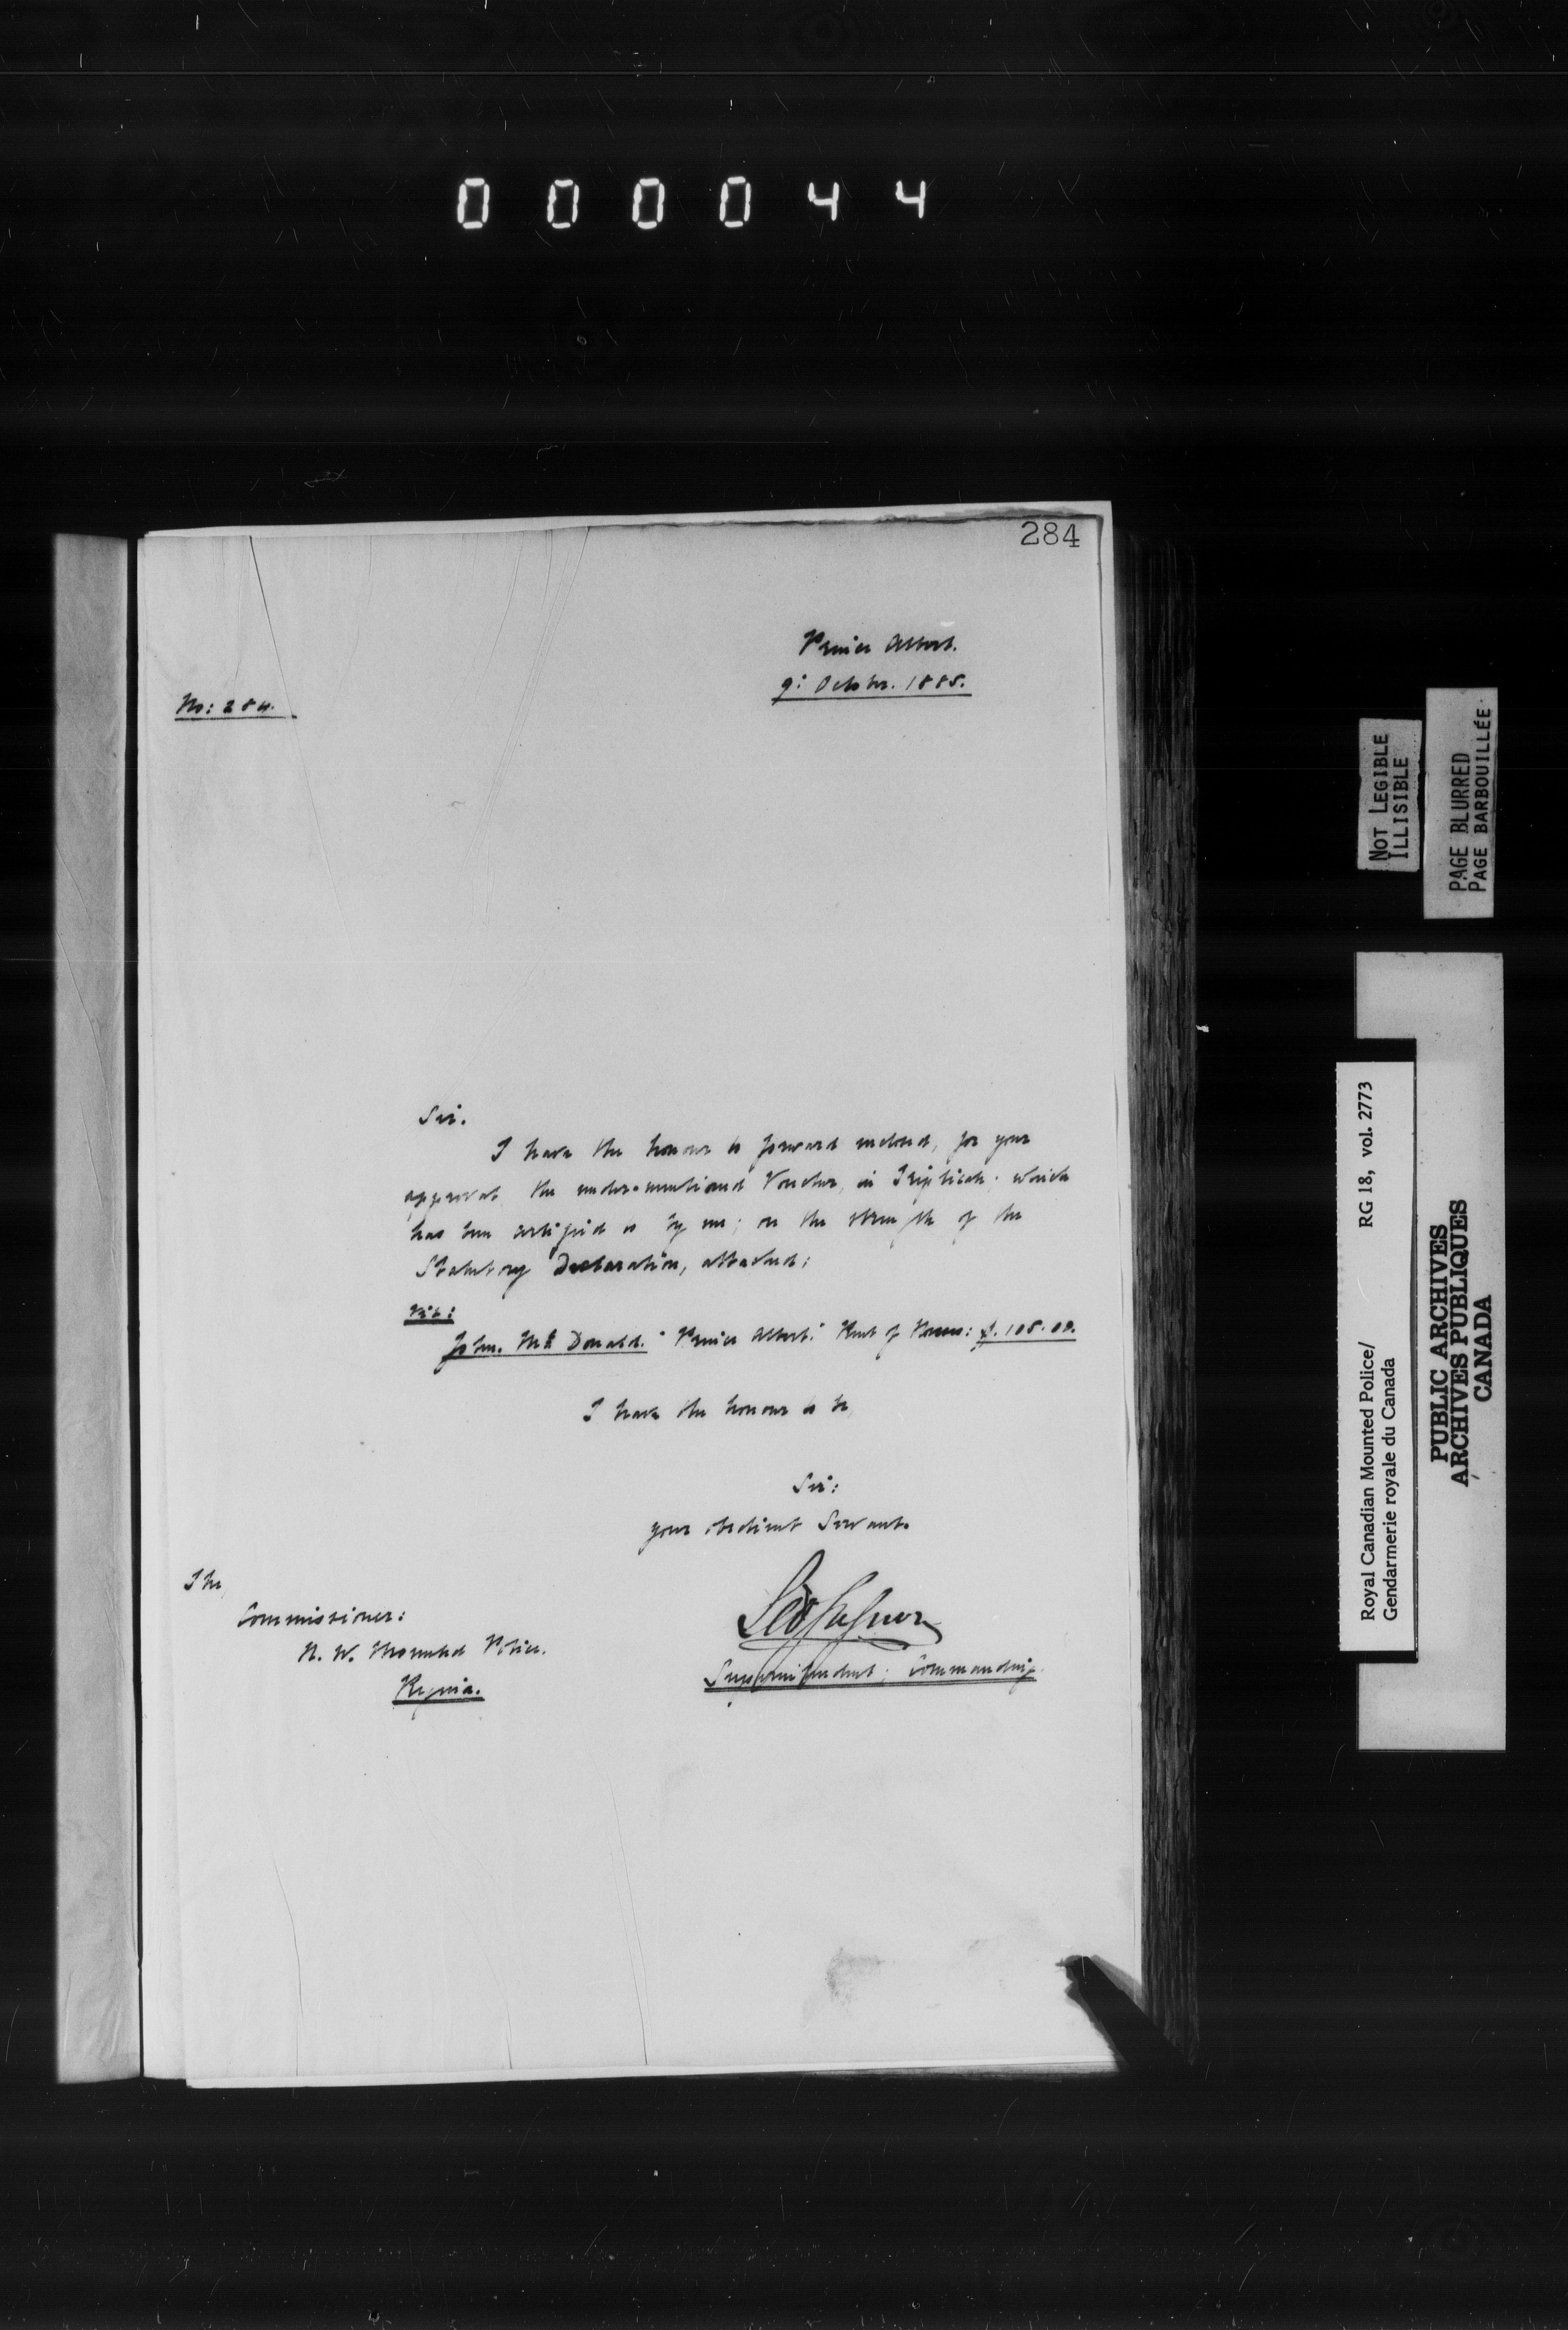 000044
284
Prince Albert.
9: Octobr. 1885.
No: 284.
Sir.
I have the honour to forward enclosed, for your
approval the under-mentioned Voucher, in Triplicate; which
has been certified to by me; on the strength of the
Statutory Declaration, attached;
Viz:
John. Mc Donald. "Prince Albert." Rent of House: $.105.00.
I have the honour to be,
Sir:
your obedient Servant.
The,
Commissioner:
N. W. Mounted Police.
Regina.
Superintendent; Commanding.
NOT LEGIBLE
ILLISIBLE
PAGE BLURRED
PAGE BARBOUILLÉE
Royal Canadian Mounted Police/ RG 18, vol. 2773
Gendarmerie royale du Canada
PUBLIC ARCHIVES
ARCHIVES PUBLIQUES
CANADA